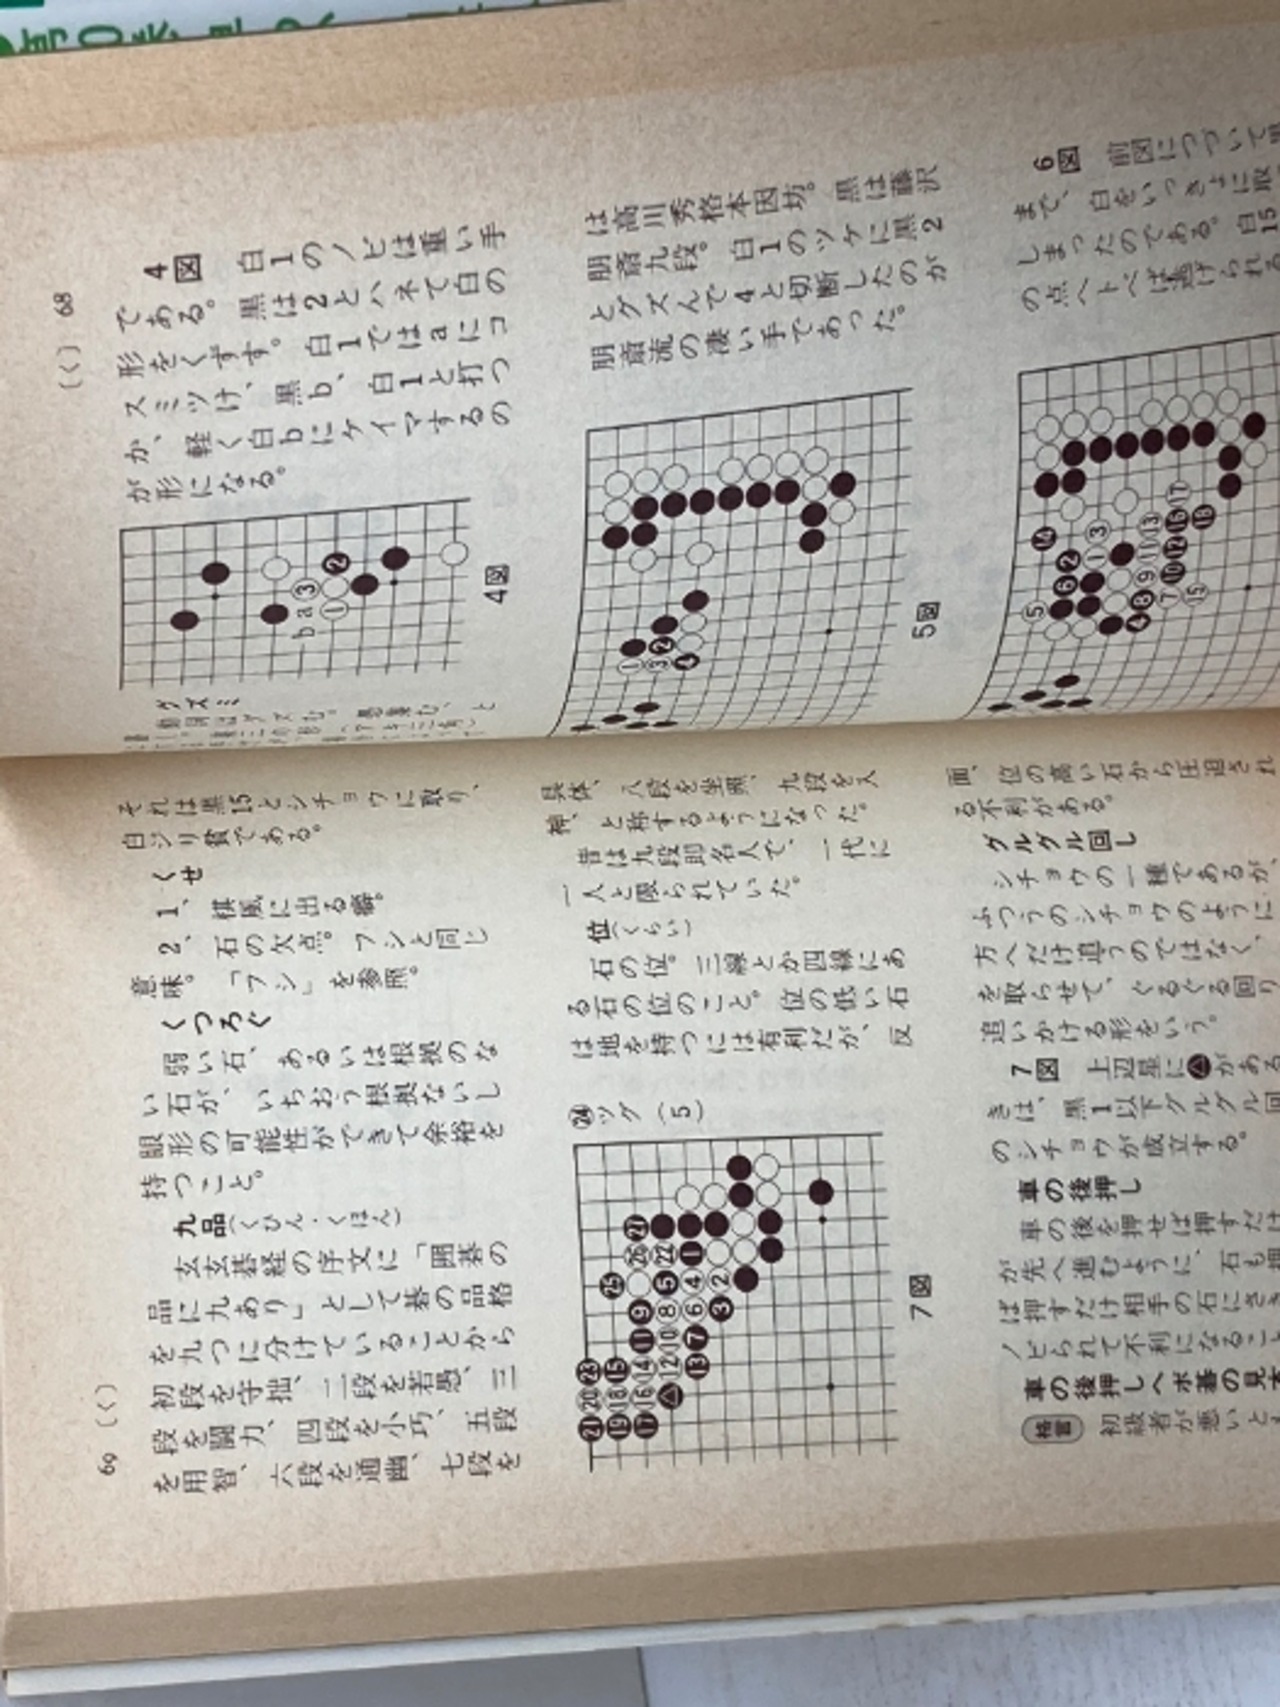 68
(く)
4図　白1のノビは重い手
である。黒は2とハネて白の
形をくずす。白1ではaにコ
スミツけ、黒b、白1と打つ
か、軽く白bにケイマするの
が形になる。
a
b
1
2
3
4図
グズミ
は高川秀格本因坊。黒は藤沢
朋斎九段。白1のツケに黒2
とグズんで4と切断したのが
朋斎流の凄い手であった。
1
2
3
4
5図
6図　前図につづいて黒
まで、白をいっきょに取
しまったのである。白15
の点へトべば逃げられる
69
(く)
それは黒15とシチョウに取り、
白ジリ貧である。
くせ
1、棋風に出る癖。
2、石の欠点。フシと同じ
意味。「フシ」を参照。
くつろぐ
弱い石、あるいは根拠のな
い石が、いちおう根拠ないし
眼形の可能性ができて余裕を
持つこと。
九品(くひん・くほん)
玄玄碁経の序文に「囲碁の
品に九あり」として碁の品格
を九つに分けていることから
初段を守拙、二段を若愚、三
段を闘力、四段を小巧、五段
を用智、六段を通幽、七段を
具体、八段を坐照、九段を入
神、と称するようになった。
昔は九段即名人で、一代に
一人と限られていた。
位(くらい)
石の位。三線とか四線にあ
る石の位のこと。位の低い石
は地を持つには有利だが、反
㉔ツグ(5)
7図
面、位の高い石から圧迫され
る不利がある。
グルグル回し
シチョウの一種であるが、
ふつうのシチョウのように
方へだけ追うのではなく、
を取らせて、ぐるぐる回り
追いかける形をいう。
7図　上辺星に▲がある
きは、黒1以下グルグル回
のシチョウが成立する。
車の後押し
車の後を押せば押すだけ
が先へ進むように、石も押
ば押すだけ相手の石にさき
ノビられて不利になること
車の後押しヘボ碁の見本
格言
初級者が悪いと